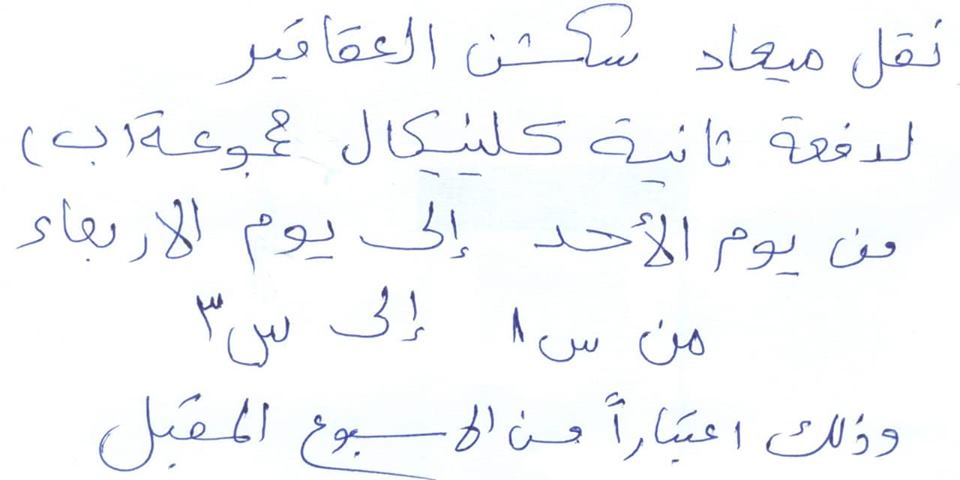 نقل ميعاد سكشن العقاقير
لدفعة ثانية كلينيكال مجموعة (ب)
من يوم الأحد إلى يوم الاربعاء
من س ٨ إلى س ٣
وذلك اعتباراً من الاسبوع المقبل